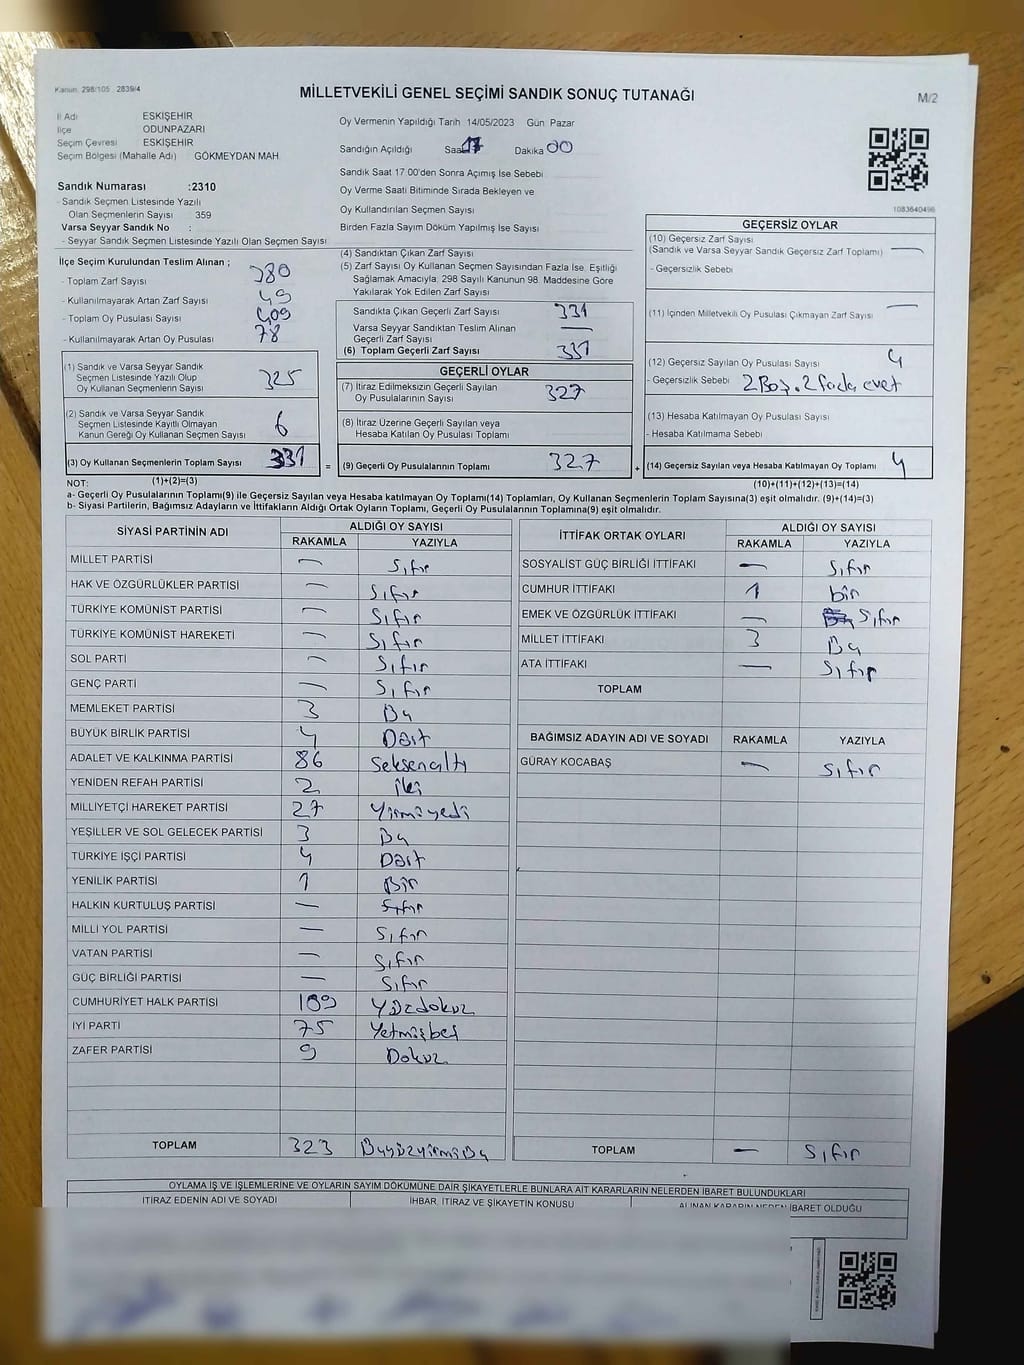 Kanun: 298/105 , 2839/4
MİLLETVEKİLİ GENEL SEÇİMİ SANDIK SONUÇ TUTANAĞI
M/2
İl Adı ESKİŞEHİR
İlçe ODUNPAZARI
Seçim Çevresi ESKİŞEHİR
Seçim Bölgesi (Mahalle Adı) GÖKMEYDAN MAH
Oy Vermenin Yapıldığı Tarih 14/05/2023 Gün Pazar
Sandığın Açıldığı Saat 17 Dakika 00
Sandık Saat 17 00'den Sonra Açımış İse Sebebi
Oy Verme Saati Bitiminde Sırada Bekleyen ve
Oy Kullandırılan Seçmen Sayısı
Birden Fazla Sayım Döküm Yapılmış İse Sayısı
1083640496
Sandık Numarası :2310
- Sandık Seçmen Listesinde Yazılı
Olan Seçmenlerin Sayısı 359
Varsa Seyyar Sandık No :
- Seyyar Sandık Seçmen Listesinde Yazılı Olan Seçmen Sayısı
İlçe Seçim Kurulundan Teslim Alınan ;
- Toplam Zarf Sayısı 380
- Kullanılmayarak Artan Zarf Sayısı 49
- Toplam Oy Pusulası Sayısı 409
- Kullanılmayarak Artan Oy Pusulası 78
(1) Sandık ve Varsa Seyyar Sandık
Seçmen Listesinde Yazılı Olup
Oy Kullanan Seçmenlerin Sayısı 325
(2) Sandık ve Varsa Seyyar Sandık
Seçmen Listesinde Kayıtlı Olmayan
Kanun Gereği Oy Kullanan Seçmen Sayısı 6
(3) Oy Kullanan Seçmenlerin Toplam Sayısı 331 =
(1)+(2)=(3)
(4) Sandıktan Çıkan Zarf Sayısı
(5) Zarf Sayısı Oy Kullanan Seçmen Sayısından Fazla İse, Eşitliği
Sağlamak Amacıyla, 298 Sayılı Kanunun 98. Maddesine Göre
Yakılarak Yok Edilen Zarf Sayısı
Sandıkta Çıkan Geçerli Zarf Sayısı 331
Varsa Seyyar Sandıktan Teslim Alınan
Geçerli Zarf Sayısı —
(6) Toplam Geçerli Zarf Sayısı 331
GEÇERLİ OYLAR
(7) İtiraz Edilmeksizin Geçerli Sayılan
Oy Pusulalarının Sayısı 327
(8) İtiraz Üzerine Geçerli Sayılan veya
Hesaba Katılan Oy Pusulası Toplamı
(9) Geçerli Oy Pusulalarının Toplamı 327 +
GEÇERSİZ OYLAR
(10) Geçersiz Zarf Sayısı
(Sandık ve Varsa Seyyar Sandık Geçersiz Zarf Toplamı) —
- Geçersizlik Sebebi
(11) İçinden Milletvekili Oy Pusulası Çıkmayan Zarf Sayısı —
(12) Geçersiz Sayılan Oy Pusulası Sayısı 4
- Geçersizlik Sebebi 2 Boş, 2 fazla evet
(13) Hesaba Katılmayan Oy Pusulası Sayısı
- Hesaba Katılmama Sebebi
(14) Geçersiz Sayılan veya Hesaba Katılmayan Oy Toplamı 4
(10)+(11)+(12)+(13)=(14)
NOT:
a- Geçerli Oy Pusulalarının Toplamı(9) ile Geçersiz Sayılan veya Hesaba katılmayan Oy Toplamı(14) Toplamları, Oy Kullanan Seçmenlerin Toplam Sayısına(3) eşit olmalıdır. (9)+(14)=(3)
b- Siyasi Partilerin, Bağımsız Adayların ve İttifakların Aldığı Ortak Oyların Toplamı, Geçerli Oy Pusulalarının Toplamına(9) eşit olmalıdır.
SİYASİ PARTİNİN ADI ALDIĞI OY SAYISI
RAKAMLA YAZIYLA
MİLLET PARTİSİ — Sıfır
HAK VE ÖZGÜRLÜKLER PARTİSİ — Sıfır
TÜRKİYE KOMÜNİST PARTİSİ — Sıfır
TÜRKİYE KOMÜNİST HAREKETİ — Sıfır
SOL PARTİ — Sıfır
GENÇ PARTİ — Sıfır
MEMLEKET PARTİSİ 3 Üç
BÜYÜK BİRLİK PARTİSİ 4 Dört
ADALET VE KALKINMA PARTİSİ 86 Seksenaltı
YENİDEN REFAH PARTİSİ 2 iki
MİLLİYETÇİ HAREKET PARTİSİ 27 Yirmiyedi
YEŞİLLER VE SOL GELECEK PARTİSİ 3 Üç
TÜRKİYE İŞÇİ PARTİSİ 4 Dört
YENİLİK PARTİSİ 1 Bir
HALKIN KURTULUŞ PARTİSİ — Sıfır
MİLLİ YOL PARTİSİ — Sıfır
VATAN PARTİSİ — Sıfır
GÜÇ BİRLİĞİ PARTİSİ — Sıfır
CUMHURİYET HALK PARTİSİ 109 Yüzdokuz
İYİ PARTİ 75 Yetmişbeş
ZAFER PARTİSİ 9 Dokuz
TOPLAM 323 Üçyüzyirmiüç
İTTİFAK ORTAK OYLARI ALDIĞI OY SAYISI
RAKAMLA YAZIYLA
SOSYALİST GÜÇ BİRLİĞİ İTTİFAKI — Sıfır
CUMHUR İTTİFAKI 1 bir
EMEK VE ÖZGÜRLÜK İTTİFAKI — Sıfır
MİLLET İTTİFAKI 3 Üç
ATA İTTİFAKI — Sıfır
TOPLAM
BAĞIMSIZ ADAYIN ADI VE SOYADI RAKAMLA YAZIYLA
GÜRAY KOCABAŞ — Sıfır
TOPLAM — Sıfır
OYLAMA İŞ VE İŞLEMLERİNE VE OYLARIN SAYIM DÖKÜMÜNE DAİR ŞİKAYETLERLE BUNLARA AİT KARARLARIN NELERDEN İBARET BULUNDUKLARI
İTİRAZ EDENİN ADI VE SOYADI İHBAR, İTİRAZ VE ŞİKAYETİN KONUSU ALINAN KARARIN NEDEN İBARET OLDUĞU